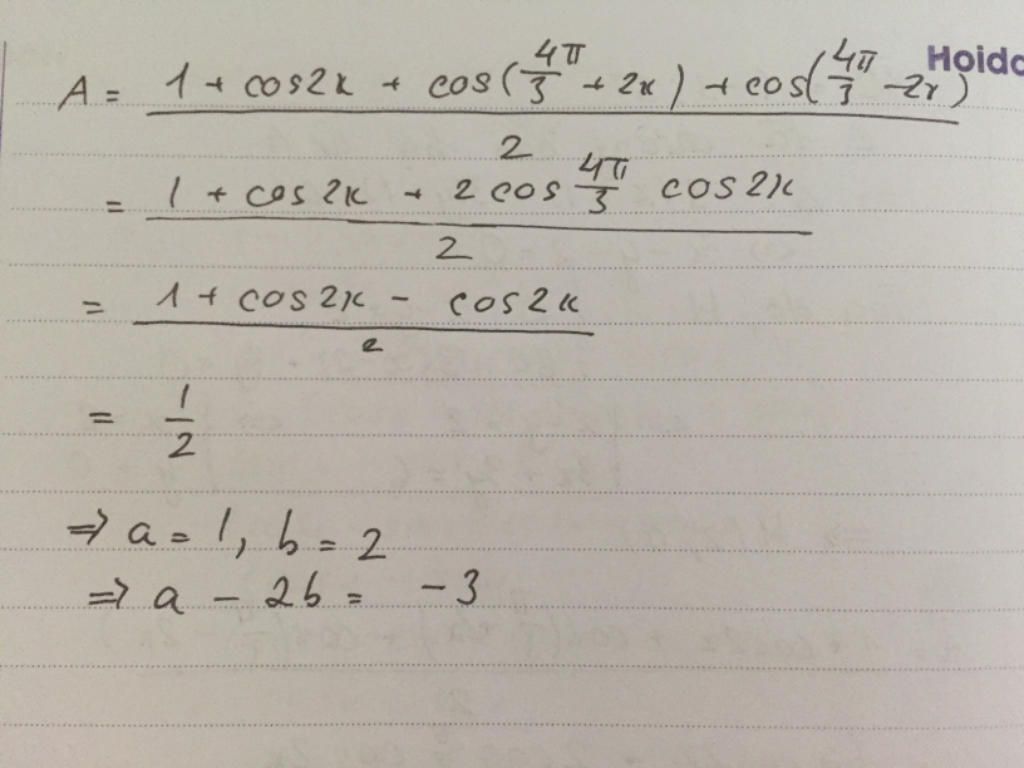 Hoidc
A = (1 + cos2x + cos(4π/3 + 2x) + cos(4π/3 - 2x)) / 2
= (1 + cos2x + 2 cos 4π/3 cos2x) / 2
= (1 + cos2x - cos2x) / 2
= 1/2
⇒ a = 1, b = 2
⇒ a - 2b = -3